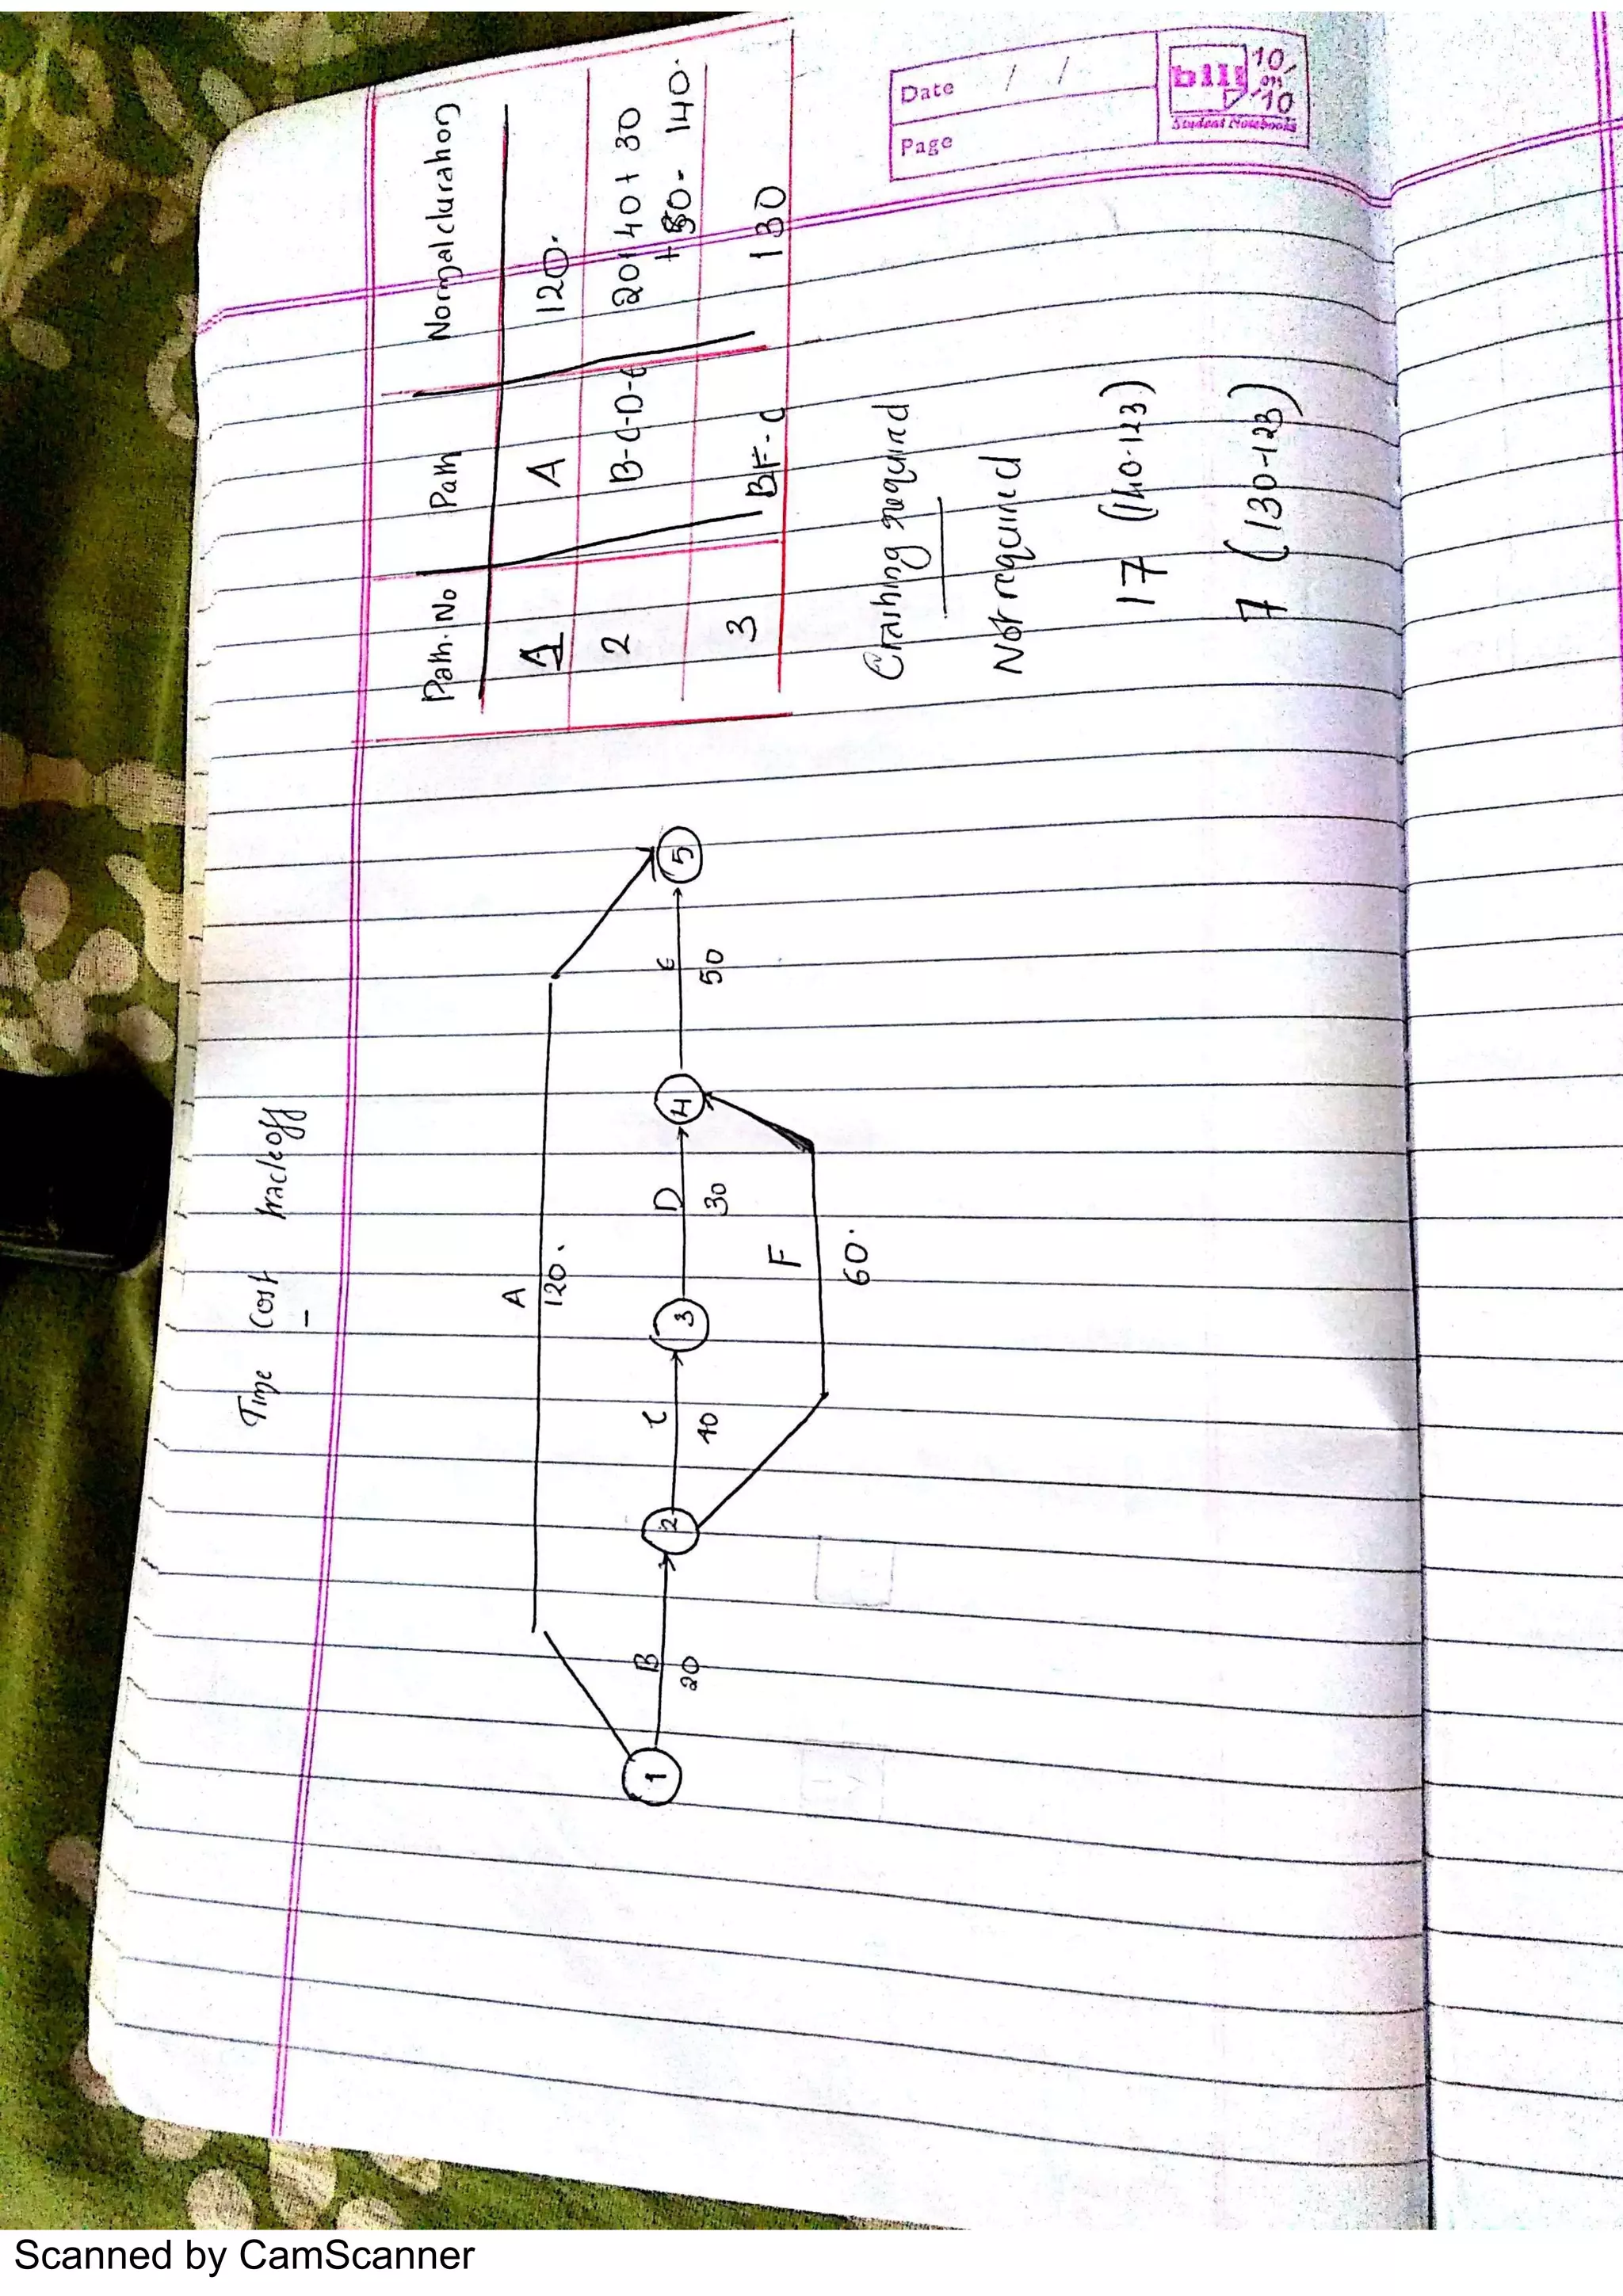 Time Cost tradeoff
A
120.
B
20
C
40
D
30
E
50
F
60.
1
2
3
4
5
Path.No Path Normal duration
1 A 120.
2 B-C-D-E 20+40+30
+50- 140.
3 BF-C 130
Crashing required
Not required
17 (140-123)
7 (130-123)
Date / /
Page
bilt
10/
on
10
Student Notebooks
Scanned by CamScanner